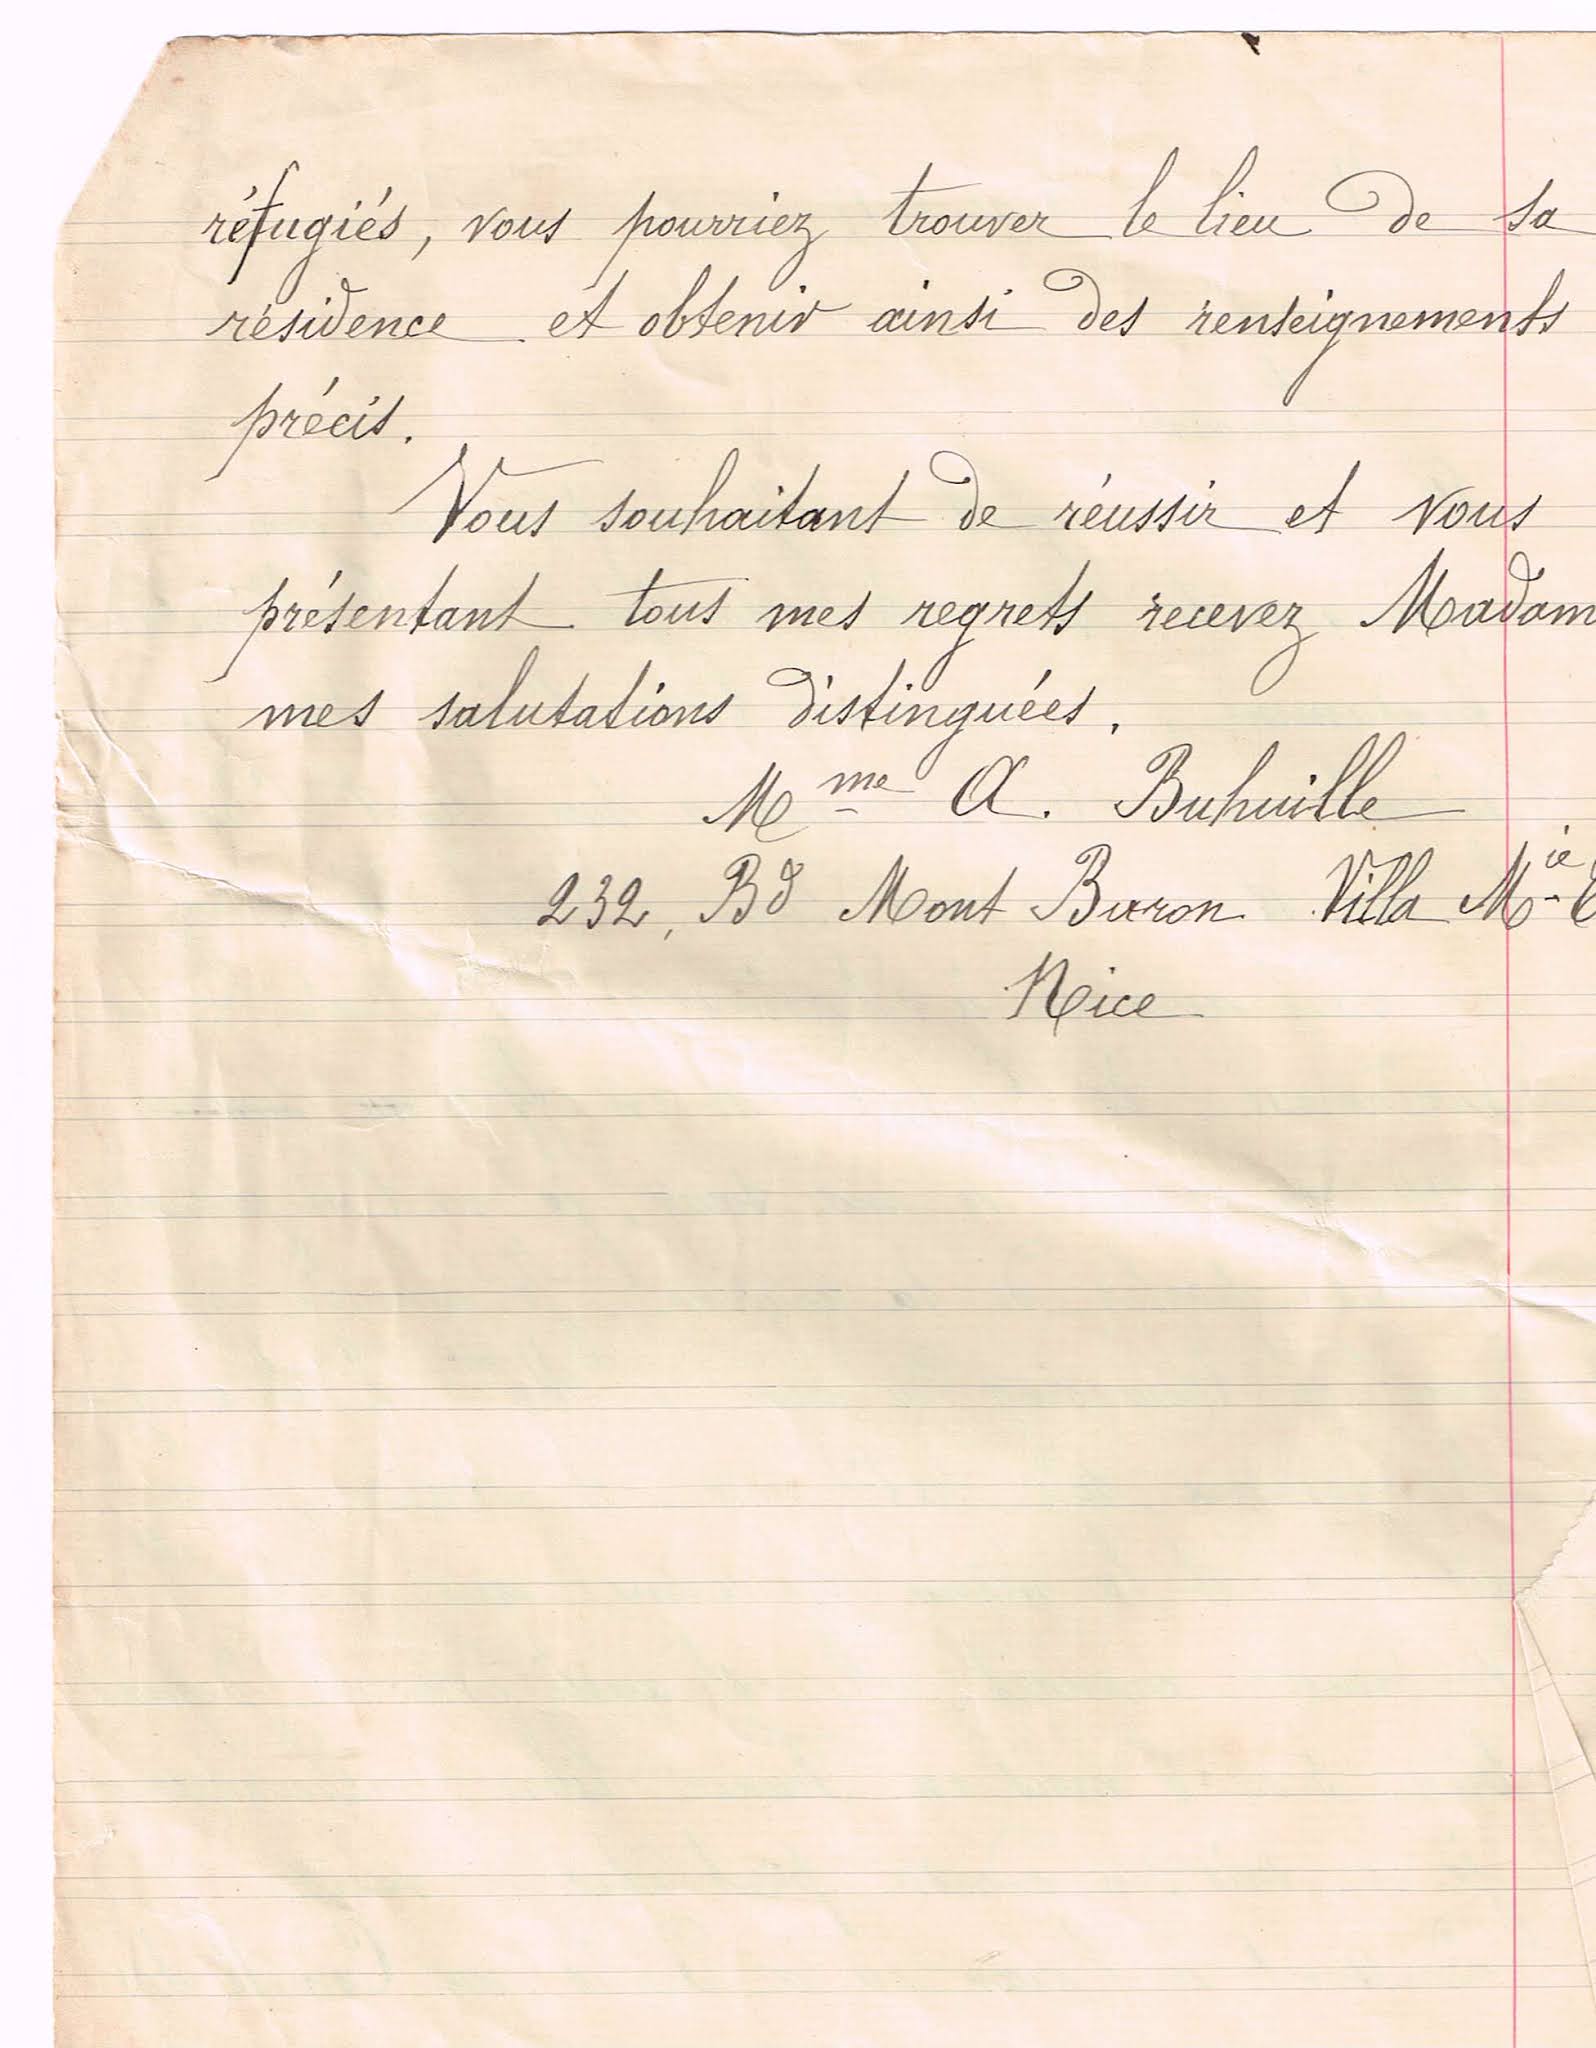 réfugiés, vous pourriez trouver le lieu de sa
résidence et obtenir ainsi des renseignements
précis.
Vous souhaitant de réussir et vous
présentant tous mes regrets recevez Madam
mes salutations distinguées.
Mme A. Buhuille
232, Bd Mont Boron Villa Mie
Nice